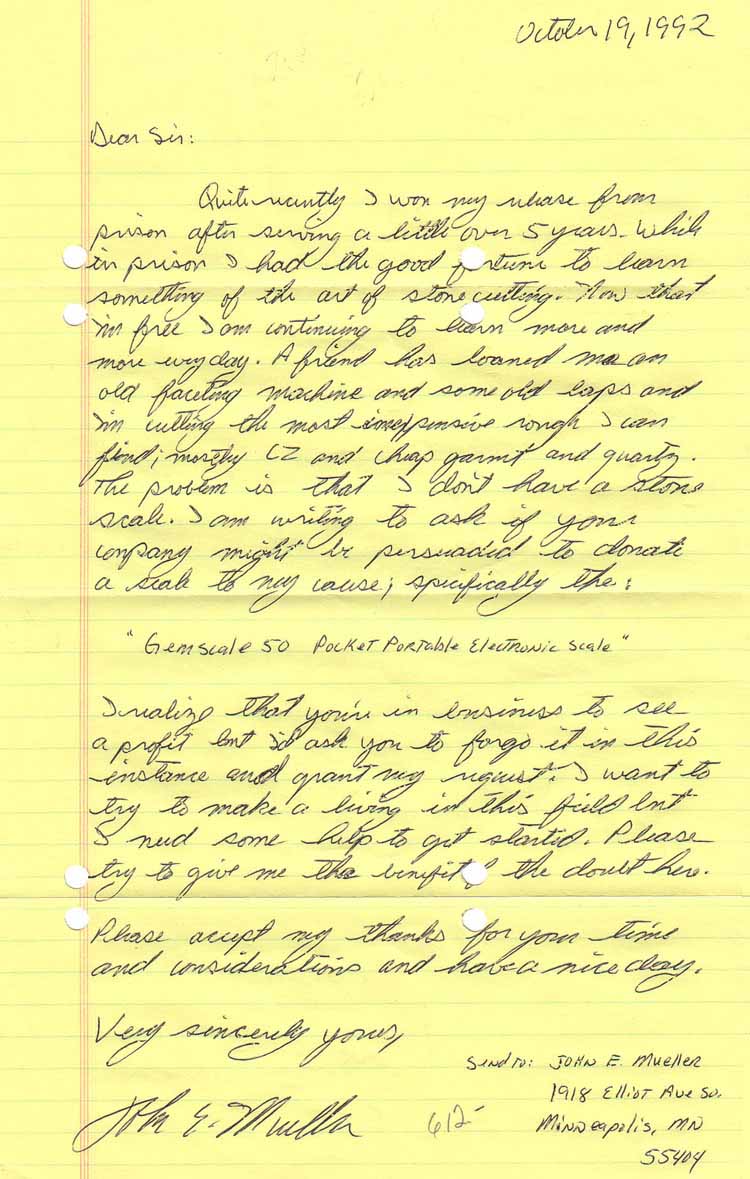 October 19, 1992
Dear Sir:
Quite recently I won my release from
prison after serving a little over 5 years. While
in prison I had the good fortune to learn
something of the art of stonecutting. Now that
I'm free I am continuing to learn more and
more everyday. A friend has loaned me an
old faceting machine and some old laps and
I'm cutting the most inexpensive rough I can
find; mostly CZ and cheap garnet and quartz.
The problem is that I don't have a stone
scale. I am writing to ask if your
company might be persuaded to donate
a scale to my cause; specifically the:
"Gemscale 50 Pocket Portable Electronic Scale"
I realize that you're in business to see
a profit but I'd ask you to forgo it in this
instance and grant my request. I want to
try to make a living in this field but
I need some help to get started. Please
try to give me the benefit of the doubt here.
Please accept my thanks for your time
and considerations and have a nice day.
Very sincerely yours,
John E. Mueller
612-
Send to: John E. Mueller
1918 Elliot Ave So.
Minneapolis, MN
55404